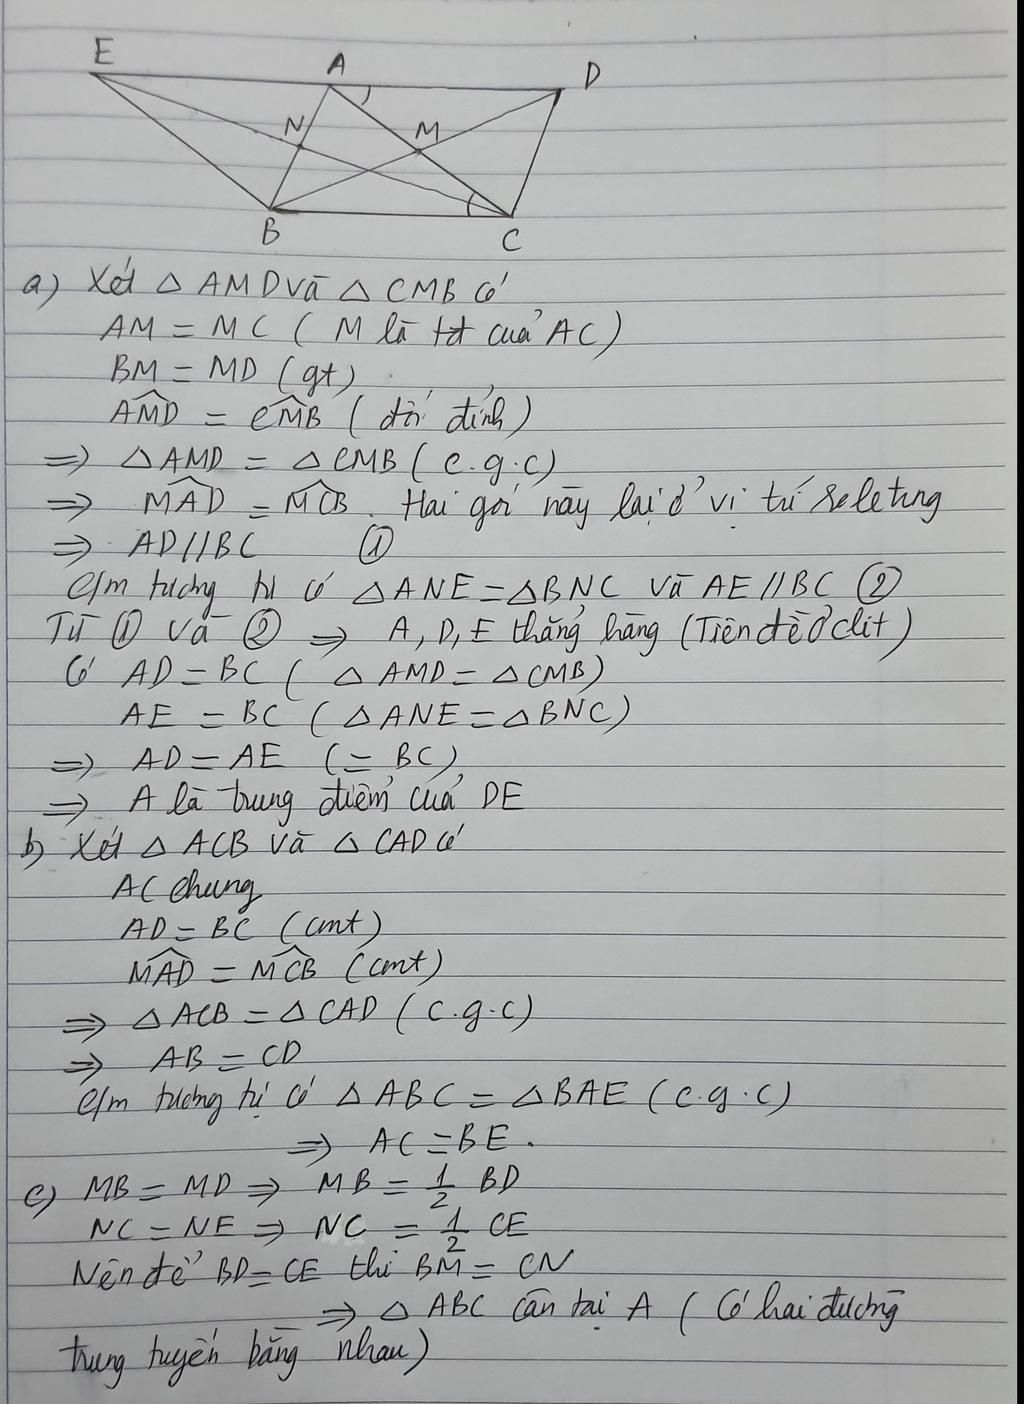 E A D
N M
B C
a) Xét △ AMD và △ CMB có
AM = MC ( M là tđ của AC )
BM = MD (gt)
AMD = CMB ( đối đỉnh )
=> △ AMD = △ CMB ( c.g.c )
=> MAD = MCB. Hai góc này lại ở vị trí so le trong
=> AD // BC ①
C/m tương tự có △ ANE = △ BNC và AE // BC ②
Từ ① và ② => A, D, E thẳng hàng (Tiên đề Ơclit)
Có AD = BC ( △ AMD = △ CMB )
AE = BC ( △ ANE = △ BNC )
=> AD = AE (= BC)
=> A là trung điểm của DE
b) Xét △ ACB và △ CAD có
AC chung
AD = BC (cmt)
MAD = MCB (cmt)
=> △ ACB = △ CAD ( c.g.c )
=> AB = CD
C/m tương tự có △ ABC = △ BAE ( c.g.c )
=> AC = BE .
c) MB = MD => MB = 1/2 BD
NC = NE => NC = 1/2 CE
Nên để BD = CE thì BM = CN
=> △ ABC cân tại A ( Có hai đường
trung tuyến bằng nhau )